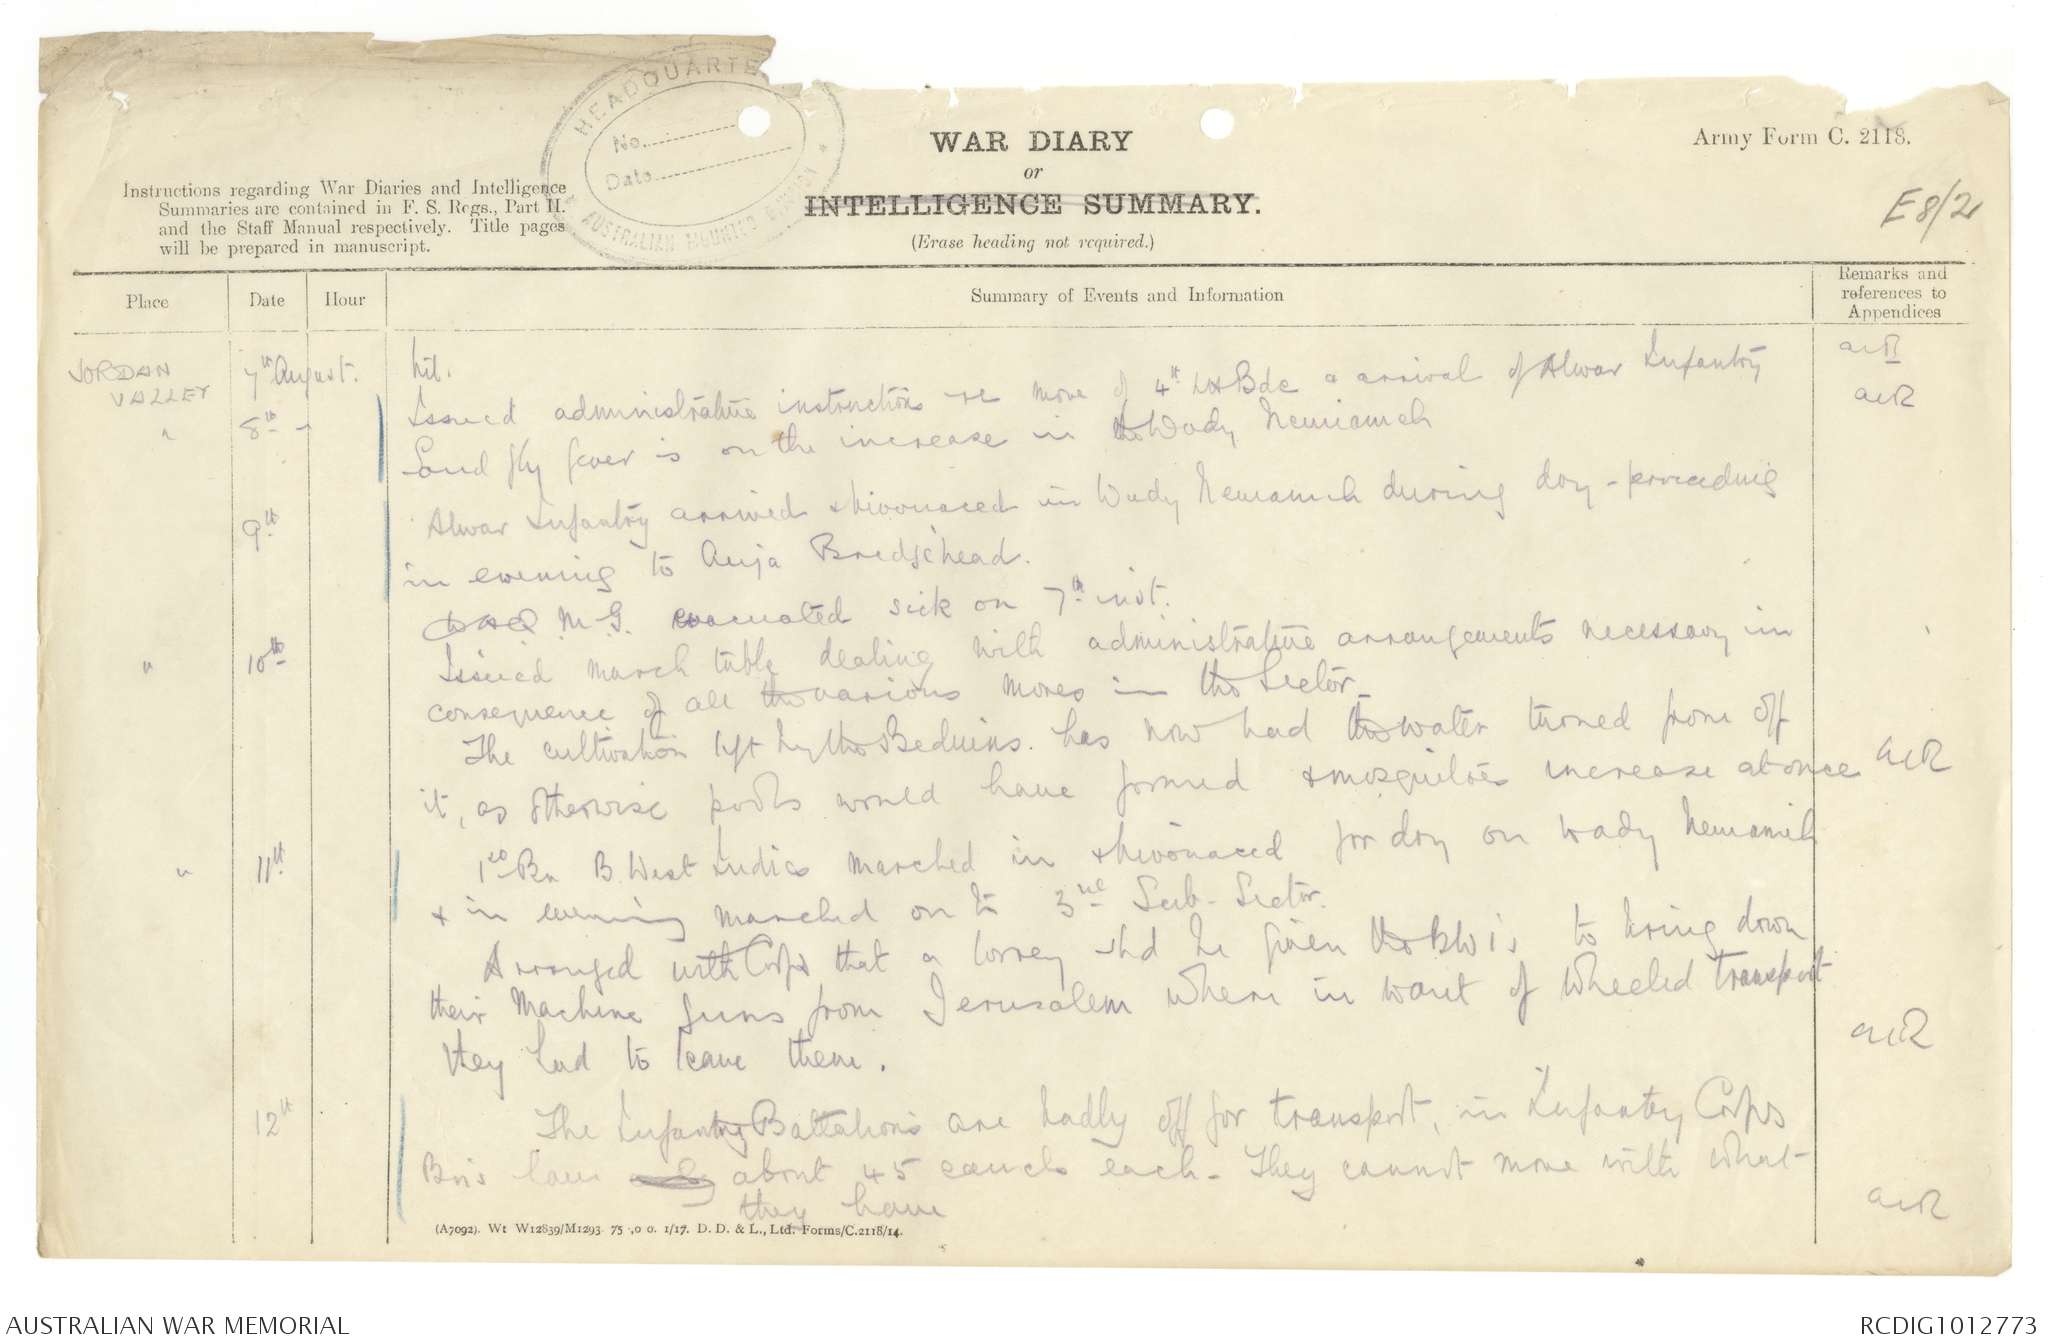 HEADQUARTE
No.
Date
AUSTRALIAN MOUNTED DIVISION
WAR DIARY
or
INTELLIGENCE SUMMARY.
(Erase heading not required.)
Army Form C. 2118.
E8/21
Instructions regarding War Diaries and Intelligence
Summaries are contained in F. S. Regs., Part II.
and the Staff Manual respectively. Title pages
will be prepared in manuscript.
Place Date Hour Summary of Events and Information Remarks and references to Appendices
JORDAN VALLEY 7th August. Nil. acR
" 8th Issued administrative instructions re move of 4th LH Bde & arrival of Alwar Infantry acR
Sand fly fever is on the increase in the Wady Nemiameh
9th Alwar Infantry arrived & bivouaced in Wady Nemiameh during day - proceeding
in evening to Auja Bridgehead.
M.G. evacuated sick on 7th inst.
" 10th Issued march table dealing with administrative arrangements necessary in
consequence of all the various moves in the Sector_
The cultivation left by the Beduins. has now had the water turned from off
it, as otherwise pools would have formed & mosquitoes increase at once acR
" 11th 1st Bn B. West Indies marched in & bivouaced for day on Wady Nemiameh
& in evening marched on to 3rd Sub-Sector.
Arranged with Corps that a lorrey shd be given the BWI's to bring down
their Machine Guns from Jerusalem where in want of wheeled transport
they had to leave them. acR
12th The Infantry Battalions are badly off for transport, in Infantry Corps
Bn's have about 45 camels each - They cannot move with what
they have acR
(A7092). Wt W12839/M1293 75 ,0 0. 1/17. D. D. & L., Ltd. Forms/C.2118/14.
AUSTRALIAN WAR MEMORIAL
RCDIG1012773